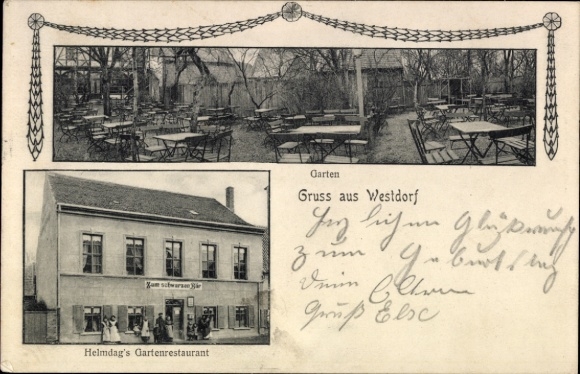 Garten
Gruss aus Westdorf
Herzlichen Glückwunsch
zum Geburtstag
Deine Eltern
Gruß Else
Zum schwarzen Bär
Helmdag's Gartenrestaurant